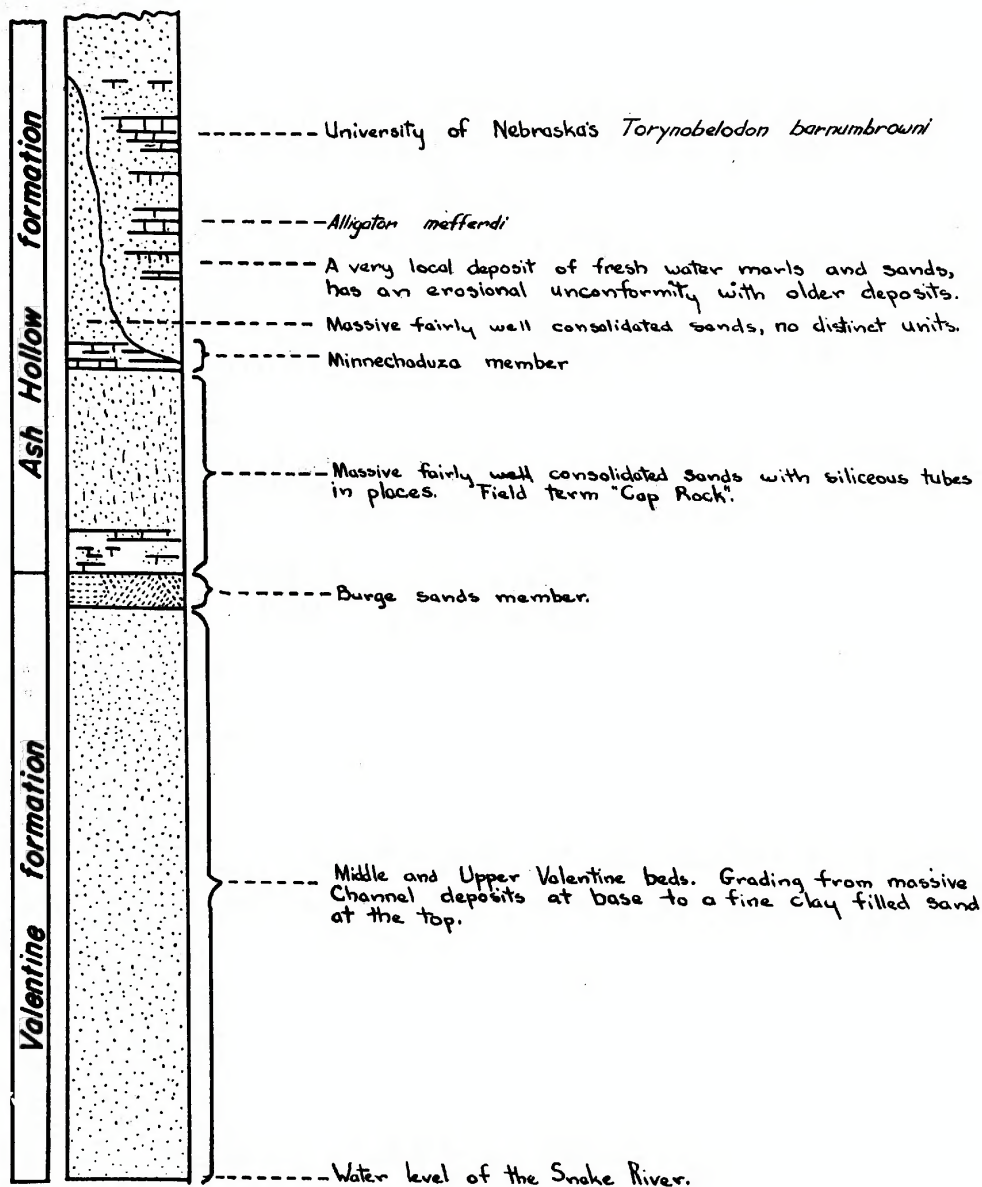 Ash Hollow formation
Valentine formation
University of Nebraska's Torynobelodon barnumbrowni
Alligator meffendi
A very local deposit of fresh water marls and sands,
has an erosional unconformity with older deposits.
Massive fairly well consolidated sands, no distinct units.
Minnechaduza member
Massive fairly well consolidated sands with siliceous tubes
in places. Field term "Cap Rock".
Burge sands member.
Middle and Upper Valentine beds. Grading from massive
Channel deposits at base to a fine clay filled sand
at the top.
Water level of the Snake River.